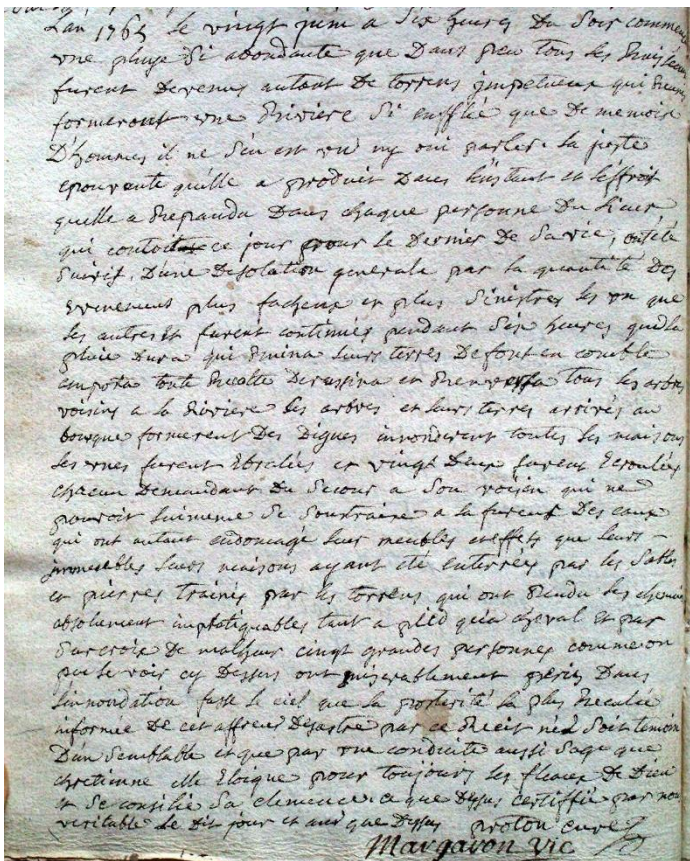 L'an 1765 le vingt juin a six heures du soir commença
une pluye si abondante que dans peu tous les ruisseaux
furent devenus autant de torrens impetueux qui reunis
formeront une riviere si enflée que de memoire
d'hommes il ne s'en est vu ny oui parler. la juste
epouvente qu'elle a produit dans l'instant et l'effroit
quelle a repandu dans chaque personne du lieu
qui contoit ce jour pour le dernier de sa vie, ont été
suivis d'une desolation generale par la quantité des
evenemens plus facheux et plus sinistres les un que
les autres et furent continués pendant six heures que la
pluie dura qui ruina leurs terres de font en comble
emporta toute recolte deracina et renversa tous les arbres
voisins a la riviere les arbres et leurs terres arrivés au
bourque formerent des digues innonderent toutes les maisons
les unes furent ebralées et vingt deux furent ecroulées
chacun demandant du secour a son voisin qui ne
pouvoit luimeme se soutraire a la fureur des eaux
qui ont autant endomagé leur meubles et effets que leurs
immeubles leurs maisons ayant été enterrées par les sables
et pierres trainés par les torrens qui ont rendu les chemins
absolument impratiquables tant a pied qu'a cheval et par
surcroix de malheur cinq grandes personnes comme on
peu le voir cy dessus ont miserablement peris dans
l'innondation fasse le ciel que la posterité la plus reculée
informée de cet affreux desastre par ce recit n'ed soit temoin
d'un semblable et que par une conduite aussi sage que
chretienne elle eloique pour toujours les fleaux de dieu
et se consilie sa clemence. ce que dessus certiffié par nou
veritable le dit jour et an que dessus proton curé
Margaron vic